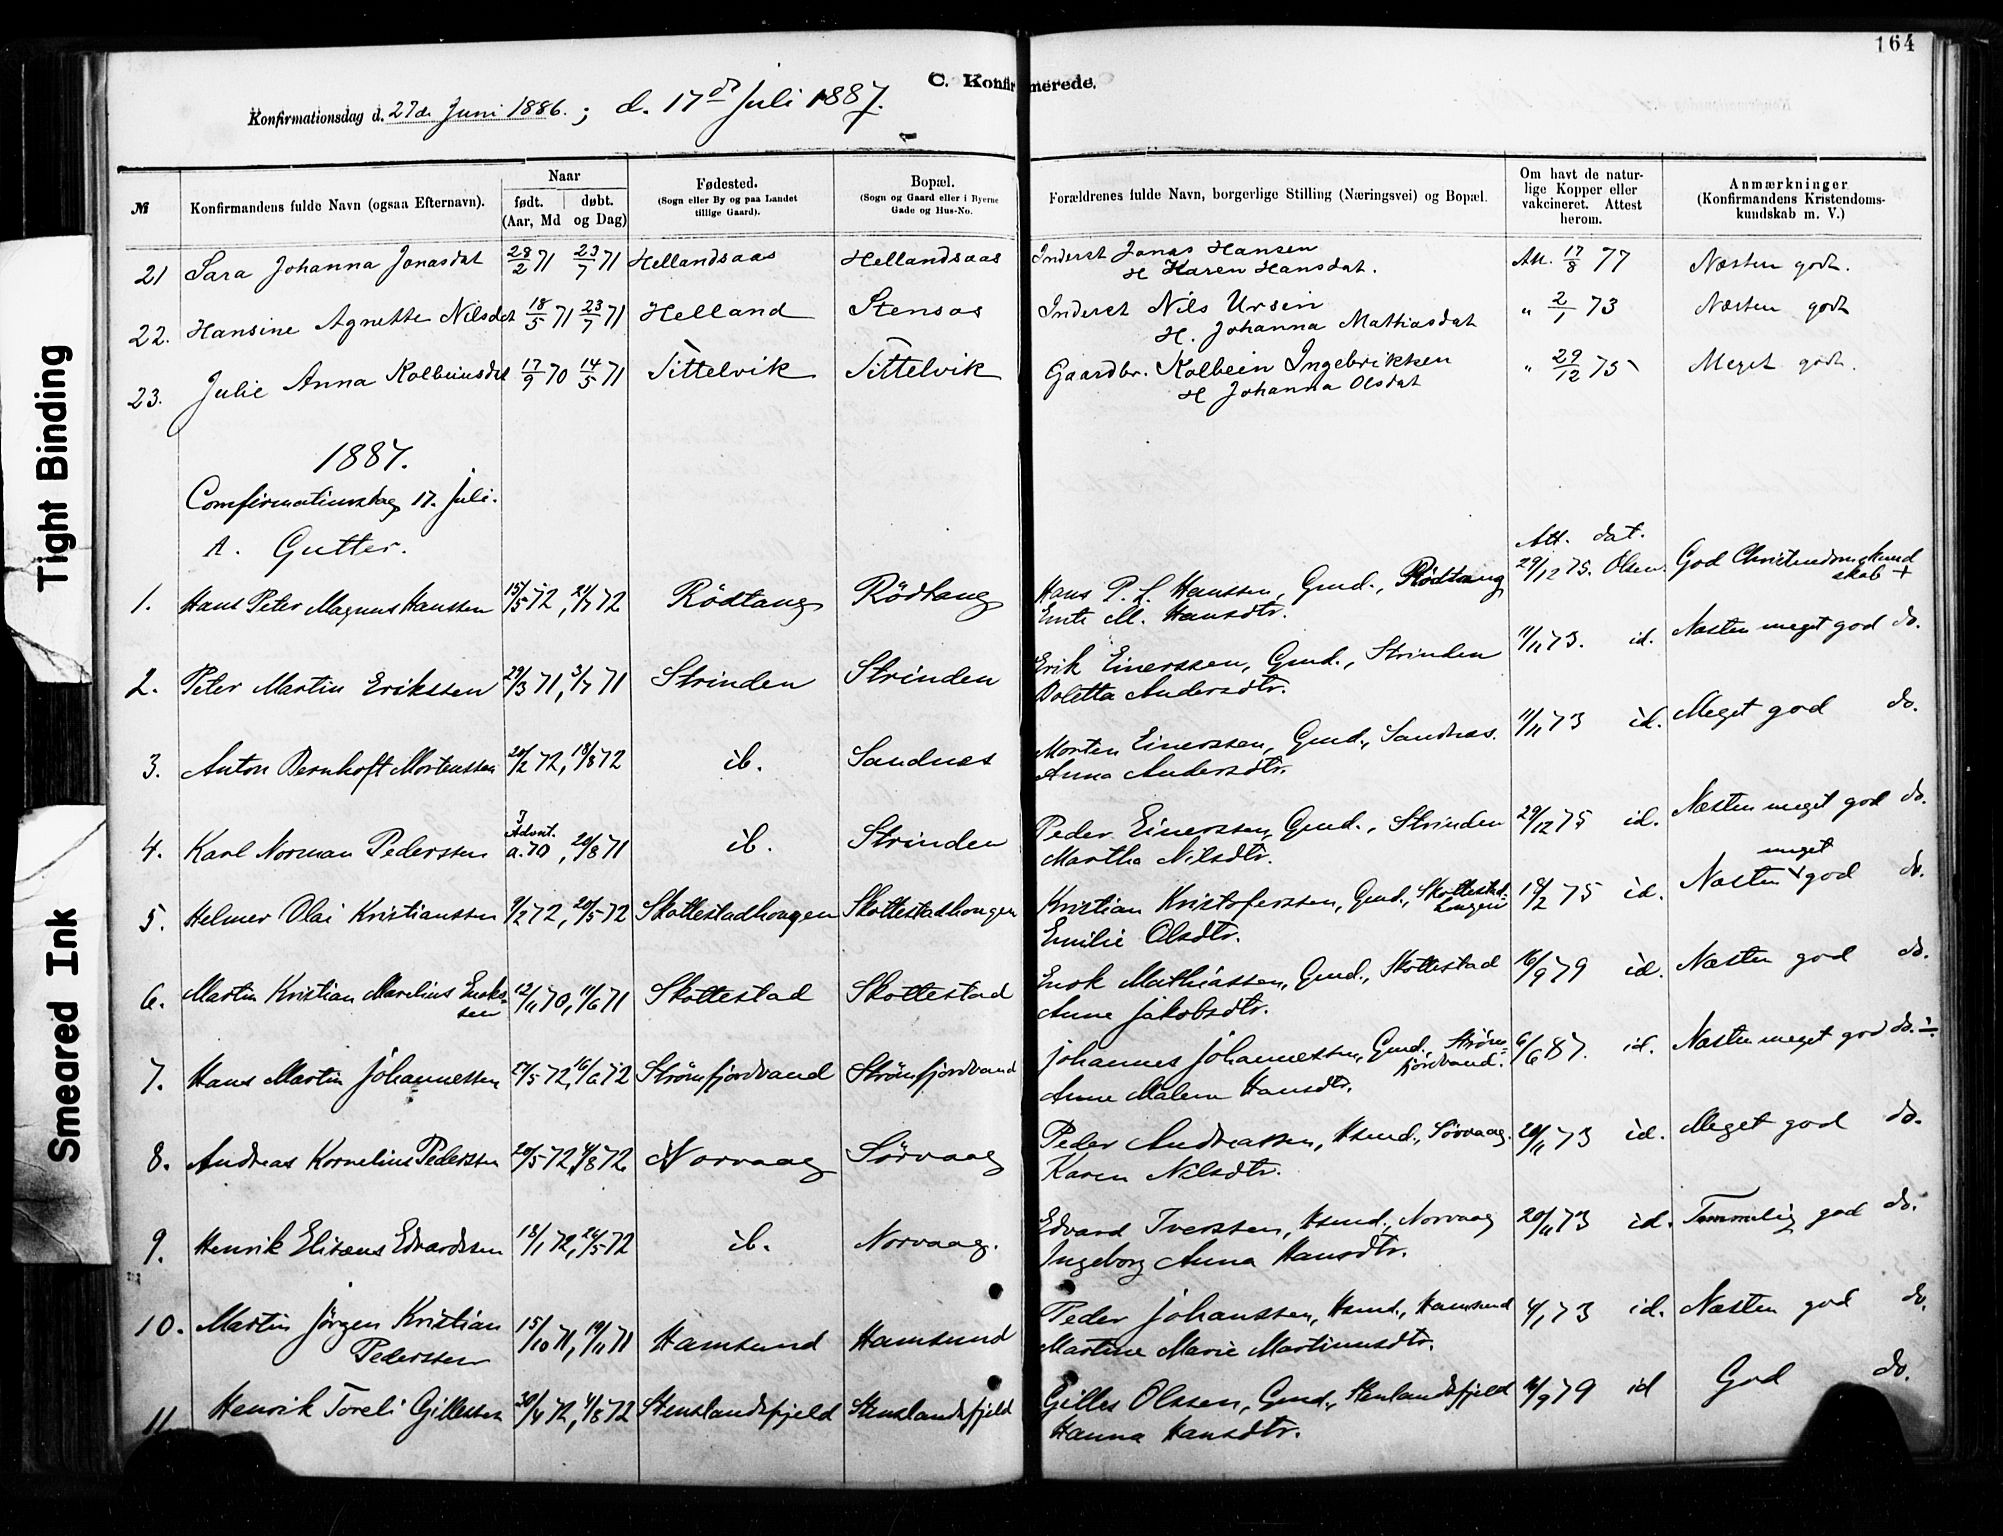 164
C. Konfirmerede.
Konfirmationsdag d. 27de Juni 1886. ; d. 17de Juli 1887.
№ Konfirmandens fulde Navn (ogsaa Efternavn). Naar født. (Aar, Md døbt. og Dag) Fødested. (Sogn eller By og paa Landet tillige Gaard). Bopæl. (Sogn og Gaard eller i Byerne Gade og Hus-No. Forældrenes fulde Navn, borgerlige Stilling (Næringsvei) og Bopæl. Om havt de naturlige Kopper eller vakcineret. Attest herom. Anmærkninger (Konfirmandens Kristendomskundskab m. V.)
21 Sara Johanna Jonasdat 28/2 71 23/7 71 Hellandsaas Hellandsaas Inderst Jonas Hansen Att. 17/8 77 Næsten godt.
H Karen Hansdat.
22. Hansine Agnette Nilsdat 18/5 71 23/7 71 Helland Stensas Inderst Nils Ursin " 2/1 73 Næsten godt
H. Johanna Mathiasdat
23. Julie Anna Kolbeinsdat 17/9 70 14/5 71 Tittelvik Tittelvik Gaardbr. Kolbein Ingebriktsen " 29/12 75 Meget godt.
H Johanna Olsdat
1887.
Comfirmationsdag 17. Juli.
A. Gutter.
Att. dat.
1. Hans Peter Magnus Hanssen 15/5 72, 21/7 72 Rödtang Rödtang Hans P. L. Hanssen, Gmd., Rödtang 29/12 75. Olsen God Christendomskund
skab +
M. Hansdtr.
2. Peter Martin Erikssen 29/3 71, 3/7 71 Strinden Strinden Erik Einerssen, Gmd., Strinden 11/11 73. id. Næsten meget god do.
Doletta Andersdtr.
3. Anton Bernhoft Mortenssen 20/2 72, 18/8 72 ib. Sandnes Morten Einerssen, Gmd., Sandnes. 11/11 73 id. Meget god do.
Anna Andersdtr.
4. Karl Norman Pederssen Advent. a. 70, 20/8 71 ib. Strinden Peder Einerssen, Gmd., Strinden 29/12 75 id. Næsten meget god do.
Martha Nilsdtr.
5. Helmer Olai Kristianssen 9/2 72, 20/5 72 Skottestadhougen Skottestadhougen Kristian Kristoferssen, Gmd., Skottestad-
hougen 18/2 75 id. Næsten meget god do.
Emilie Olsdtr.
6. Martin Kristian Marelius Enoks-
sen 12/11 70, 11/6 71 Skottestad Skottestad Enok Mathiassen, Gmd., Skottestad 16/9 79 id. Næsten god do.
Anne Jakobsdtr.
7. Hans Martin Johannessen 27/5 72, 16/6 72 Strömfjordvand Strömfjordvand Johannes Johannessen, Gmd., Ström-
fjordvand. 6/6 87. id. Næsten meget god do. ÷
Anne Malene Hansdtr.
8. Andreas Kornelius Pederssen 20/5 72, 4/8 72 Norvaag Sörvaag Peder Andreassen, Hsmd., Sörvaag. 20/11 73 id. Meget god do.
Karen Nilsdtr.
9. Henrik Elisæus Edvardssen 18/1 72, 26/5 72 ib. Norvaag. Edvard Iverssen, Hsmd., Norvaag 20/11 73 id. Temmelig god do.
Ingeborg Anna Hansdtr.
10. Martin Jörgen Kristian
Pederssen 15/10 71, 19/11 71 Hamsund Hamsund Peder Johanssen, Hsmd., Hamsund 4/1 73 id. Næsten god do.
Martine Marie Martinusdtr.
11. Henrik Toreli Gillessen 30/4 72, 4/8 72 Stenslandsfjeld Stenslandsfjeld Gilles Olssen, Gmd., Stenlandsfjeld 16/9 79 id God do.
Hanna Hansdtr.
Tight Binding
Smeared Ink